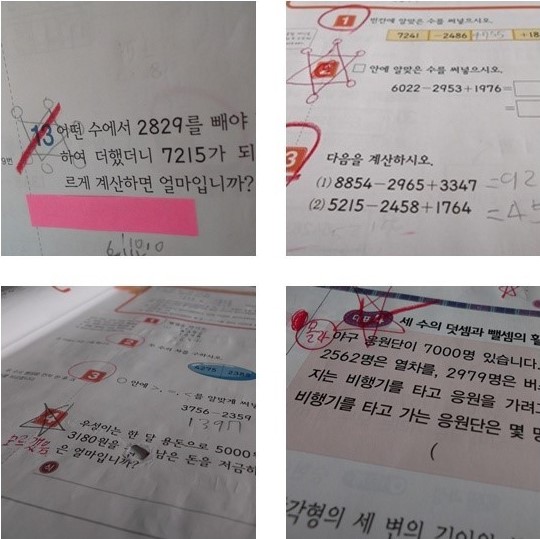 13 어떤 수에서 2829를 빼야
하여 더했더니 7215가 되
르게 계산하면 얼마입니까?
6 1010
1 빈칸에 알맞은 수를 써넣으시오.
7241 -2486 4755 +18
2 □ 안에 알맞은 수를 써넣으시오.
6022-2953+1976=
=
3 다음을 계산하시오.
(1) 8854-2965+3347 =92
(2) 5215-2458+1764 =45
2 두 수의 차를 구하시오.
4275 2358
3 ○ 안에 >, =, <를 알맞게 써넣
3756-2359
1397
우성이는 한 달 용돈으로 5000
3180원을
남은 돈을 저금하
은 얼마입니까?
식
세 수의 덧셈과 뺄셈의 활
몰라
야구 응원단이 7000명 있습니다.
2562명은 열차를, 2979명은 버스
지는 비행기를 타고 응원을 가려고
비행기를 타고 가는 응원단은 몇 명
(
각형의 세 변의 길이의